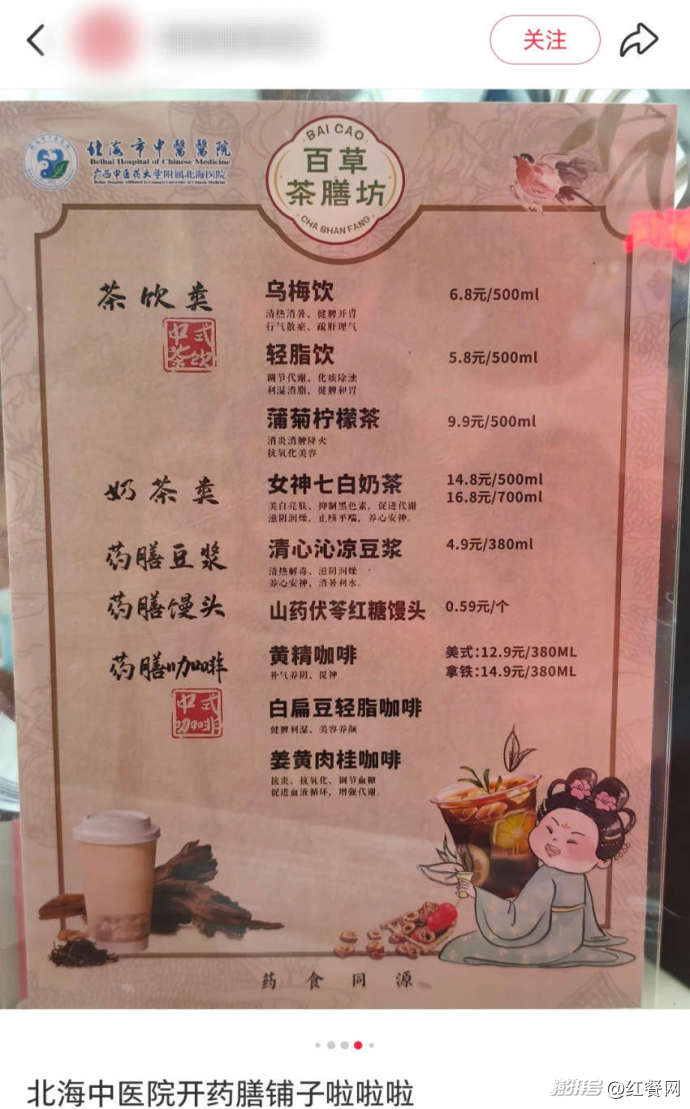 关注
北海市中醫醫院
Beihai Hospital of Chinese Medicine
广西中医药大学附属北海医院
BAI CAO
百草
茶膳坊
CHA SHAN FANG
茶饮类
中式
茶饮
乌梅饮
6.8元/500ml
清热消暑、健脾开胃
行气散瘀、疏肝理气
轻脂饮
5.8元/500ml
调节代谢、化痰除浊
利湿消脂、健脾和胃
蒲菊柠檬茶
9.9元/500ml
消炎消肿降火
抗氧化美容
奶茶类
女神七白奶茶
14.8元/500ml
16.8元/700ml
美白亮肤、抑制黑色素，促进代谢
滋阴润燥，止咳平喘，养心安神。
药膳豆浆
清心沁凉豆浆
4.9元/380ml
清热解毒、滋阴润燥
养心安神、消暑利水。
药膳馒头
山药伏苓红糖馒头
0.59元/个
药膳咖啡
中式
咖啡
黄精咖啡
美式:12.9元/380ML
拿铁:14.9元/380ML
补气养阴、提神
白扁豆轻脂咖啡
健脾利湿、美容养颜
姜黄肉桂咖啡
抗炎、抗氧化、调节血糖
促进血液循环，增强代谢。
药食同源
北海中医院开药膳铺子啦啦啦
澎湃号 @红餐网